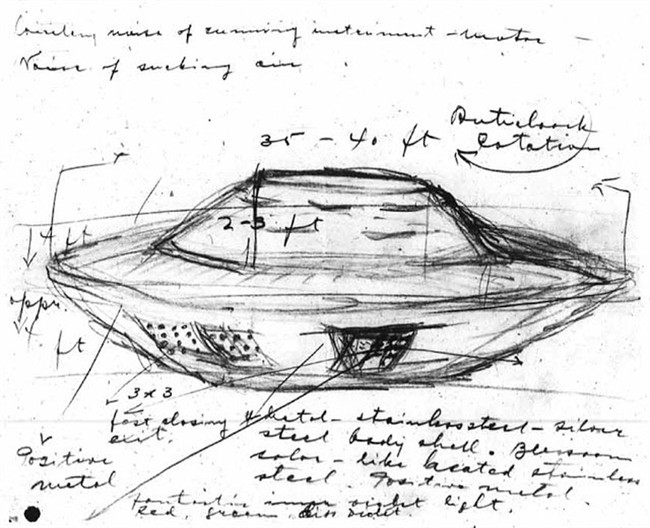 noise of running instrument - motor -
Noise of sucking air
Anticlock
35 - 40 ft
Rotation
2-3 ft
4 ft
appr.
4 ft
3x3
fast closing
exit.
metal - stainless steel - silver
steel body shell.
color - like heated stainless
steel. Positive metal.
Positive
metal
fantastic inner violet light.
Red, green, violet